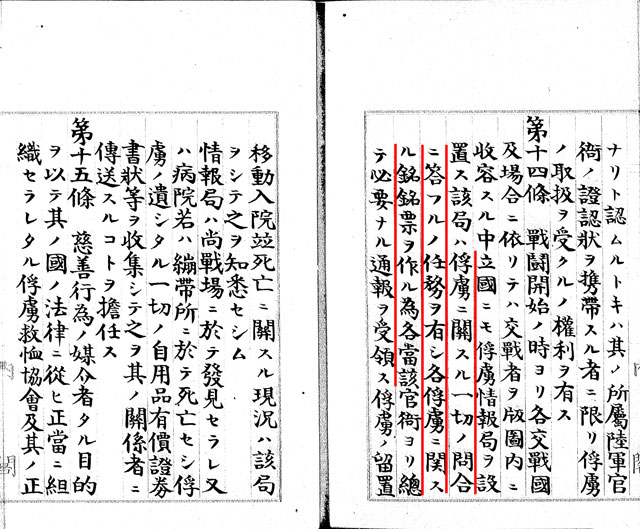 ナリト認ムルトキハ其ノ所屬陸軍官
衙ノ證認狀ヲ携帶スル者ニ限リ俘虜
ノ取扱ヲ受クルノ權利ヲ有ス
第十四條 戰鬪開始ノ時ヨリ各交戰國
及場合ニ依リテハ交戰者ヲ版圖內ニ
收容スル中立國ニモ俘虜情報局ヲ設
置ス該局ハ俘虜ニ關スル一切ノ問合
ニ答フルノ任務ヲ有シ各俘虜ニ関ス
ル銘銘票ヲ作ル為各當該官衙ヨリ總
テ必要ナル通報ヲ受領ス俘虜ノ留置
移動入院竝死亡ニ關スル現況ハ該局
ヲシテ之ヲ知悉セシム
情報局ハ尚戰場ニ於テ發見セラレ又
ハ病院若ハ繃帶所ニ於テ死亡セシ俘
虜ノ遺シタル一切ノ自用品有價證券
書狀等ヲ收集シテ之ヲ其ノ關係者ニ
傳送スルコトヲ擔任ス
第十五條 慈善行為ノ媒介者タル目的
ヲ以テ其ノ國ノ法律ニ從ヒ正當ニ組
織セラレタル俘虜救恤協會及其ノ正